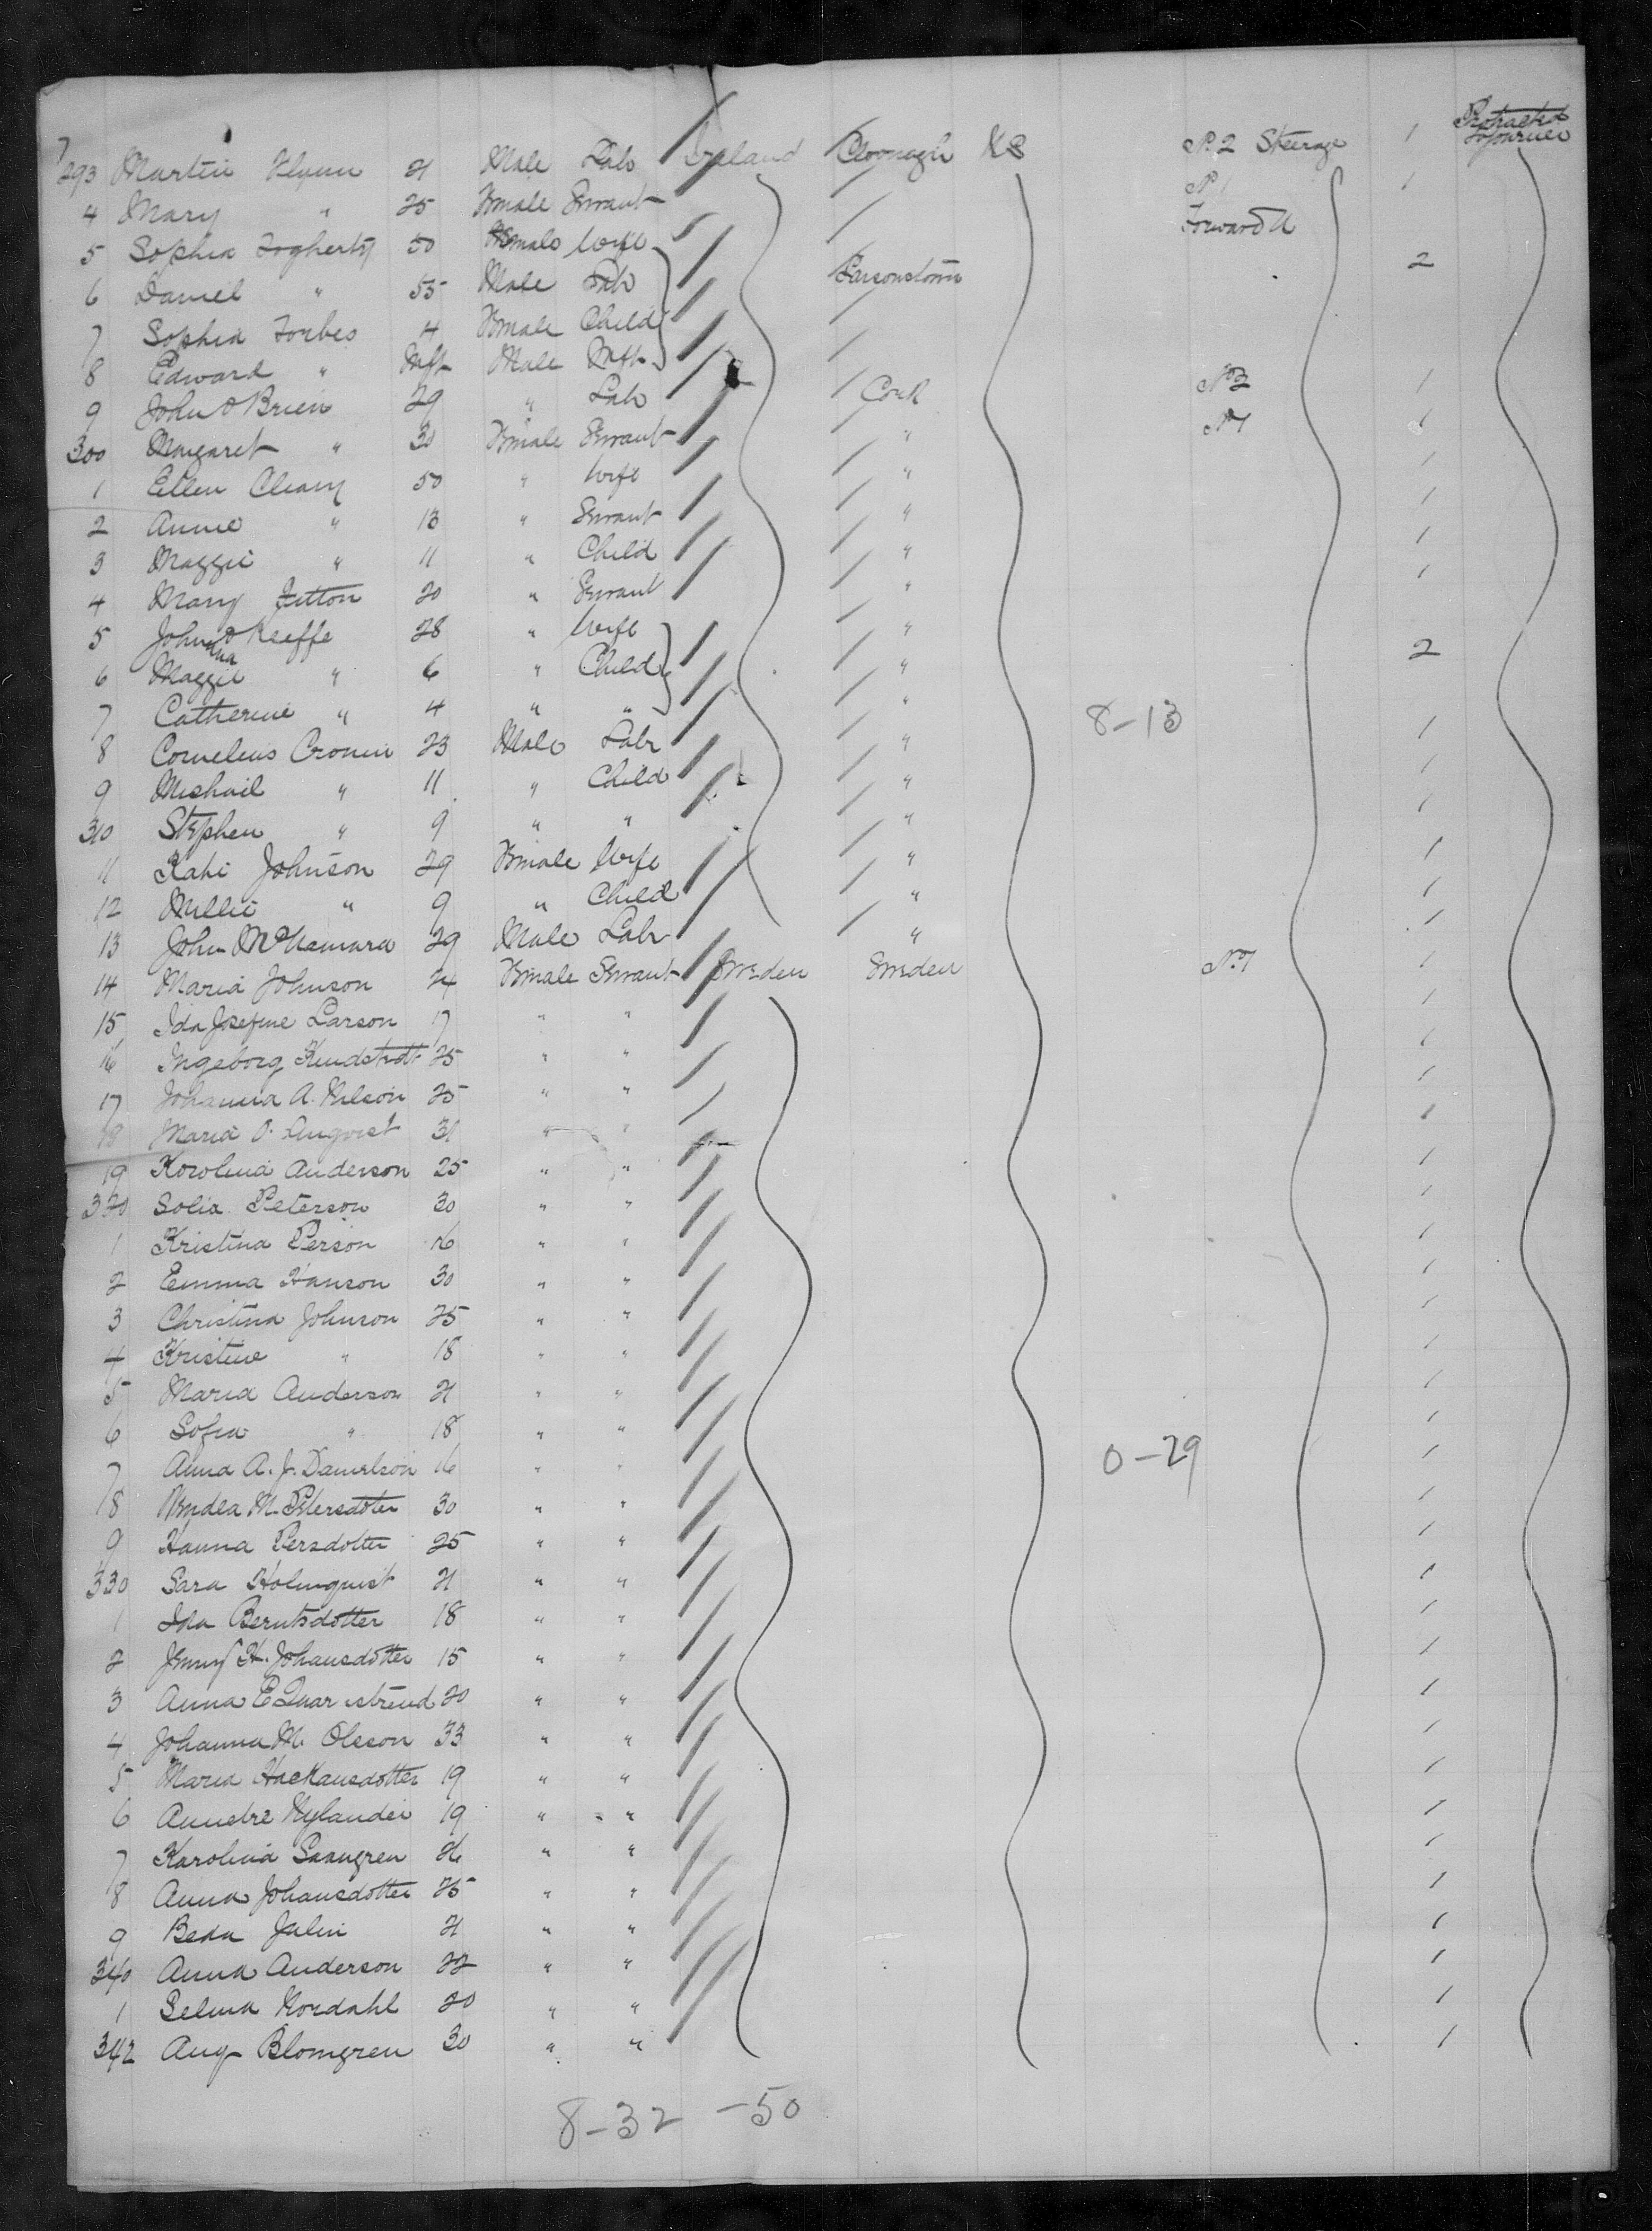 293 Martin Flynn 21 Male Lab Ireland Cloonagh US No 2 Steerage 1 Protracted Sojourner
4 Mary " 25 Female Servant No 1 1
5 Sophia Fogherty 50 Female Wife Forward U
6 Daniel " 55 Male Lab Parsonstown 2
7 Sophia Forbes 4 Female Child
8 Edward " Inft Male Inft
9 John O'Brien 29 " Lab Cork No 2 1
300 Margaret " 30 Female Servant " No 1 1
1 Ellen Cleary 50 " Wife " 1
2 Annie " 13 " Servant " 1
3 Maggie " 11 " Child " 1
4 Mary Fitton 20 " Servant " 1
5 Johanna O'Keeffe 28 " Wife "
6 Maggie " 6 " Child " 2
7 Catherine " 4 " " "
8 Cornelius Cronin 23 Male Labr " 8-13 1
9 Michail " 11 " Child " 1
310 Stephen " 9 " " " 1
11 Kate Johnson 29 Female Wife " 1
12 Millie " 9 " Child " 1
13 John McNamara 29 Male Labr " 1
14 Maria Johnson 24 Female Servant Sweden Sweden No 1 1
15 Ida Josefine Larson 17 " " 1
16 Ingeborg 25 " " 1
17 Johanna A. Nelson 25 " " 1
18 Maria O. 31 " " 1
19 Korolina Anderson 25 " " 1
320 Sofia Peterson 30 " " 1
1 Kristina Person 16 " " 1
2 Emma Hanson 30 " " 1
3 Christina Johnson 25 " " 1
4 Kristine " 18 " " 1
5 Maria Anderson 21 " " 1
6 Sofia " 18 " " 1
7 Anna A. J. Danielson 16 " " 0-29 1
8 M. Petersdoter 30 " " 1
9 Hanna Persdotter 25 " " 1
330 Sara Holmquist 21 " " 1
1 Ida Berntsdotter 18 " " 1
2 Jenny H. Johansdotter 15 " " 1
3 Anna E 20 " " 1
4 Johanna M. Olsson 33 " " 1
5 Maria Hackansdotter 19 " " 1
6 Nylander 19 " " 1
7 Karolina 26 " " 1
8 Anna Johansdotter 25 " " 1
9 Beda Julin 21 " " 1
340 Anna Anderson 22 " " 1
1 Selma Nordahl 20 " " 1
342 Aug Blomgren 30 " " 1
8-32 -50